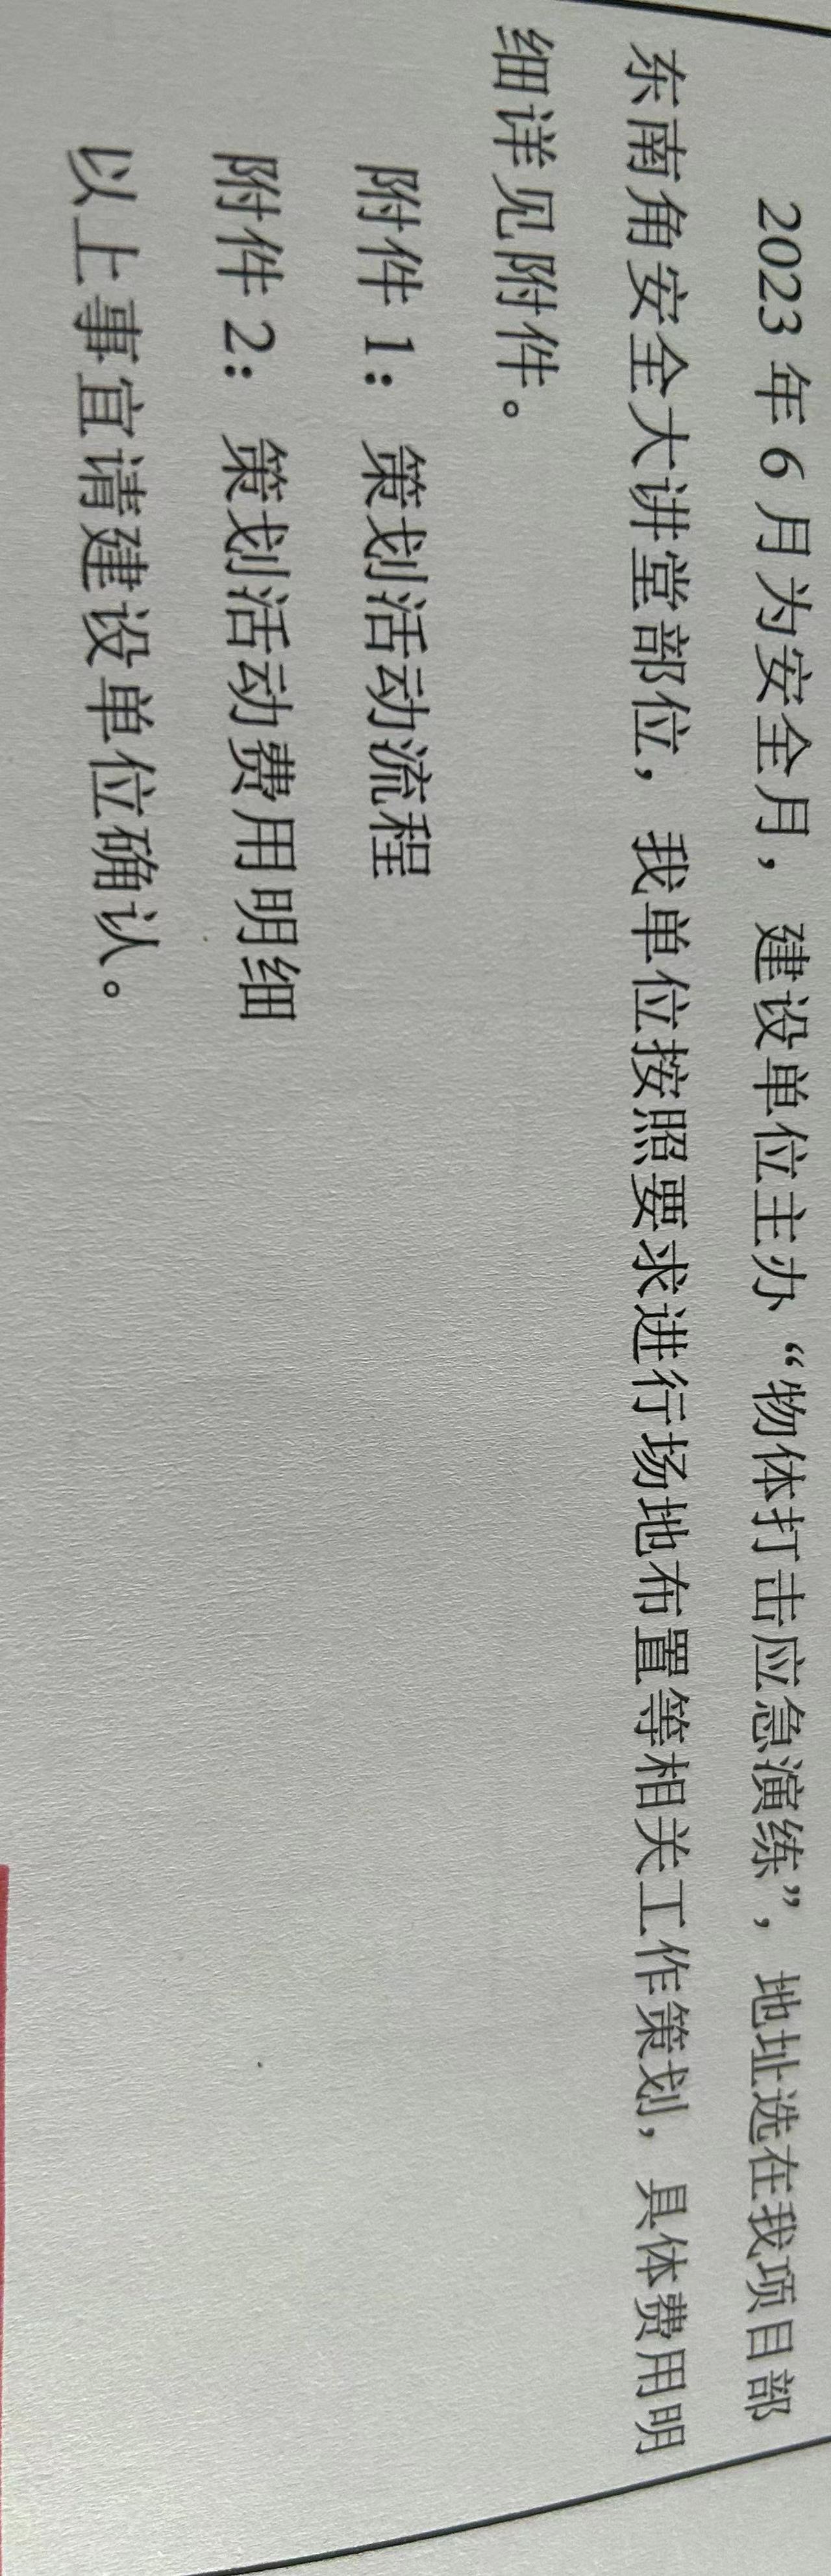 2023 年 6 月为安全月，建设单位主办“物体打击应急演练”，地址选在我项目部
东南角安全大讲堂部位，我单位按照要求进行场地布置等相关工作策划，具体费用明
细详见附件。
附件 1：策划活动流程
附件 2：策划活动费用明细
以上事宜请建设单位确认。